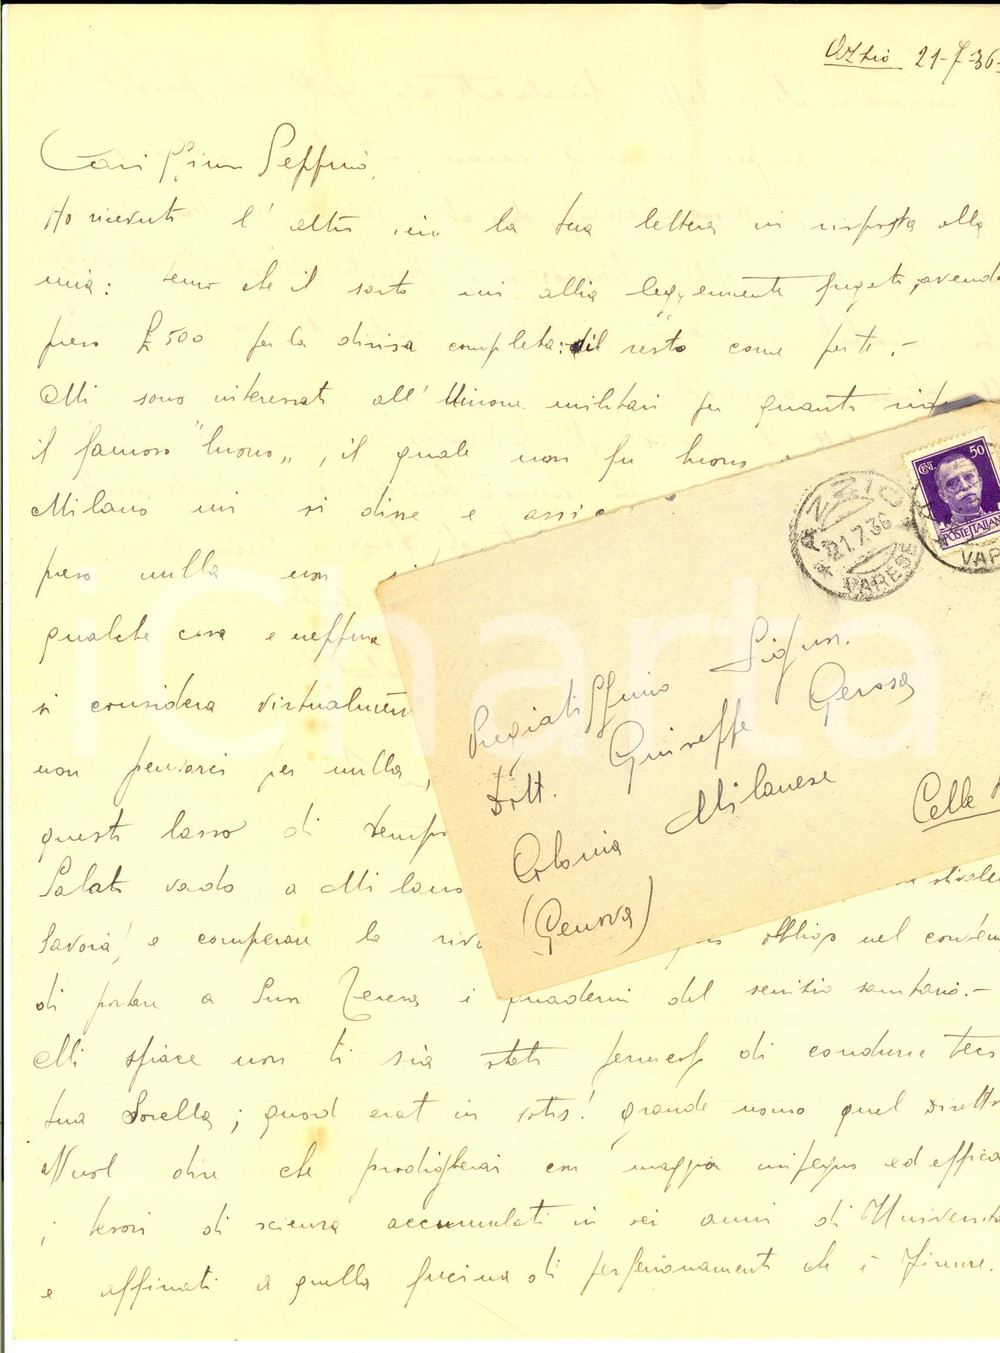 Azzio 21-7-36-
Carissimo Peppino,
Ho ricevuto l'altro ieri la tua lettera in risposta alla
mia: temo che il sarto mi abbia leggermente fregato, avendo
preso £ 500 per la divisa completa: il resto come parte.-
Mi sono interessato all'Unione militare per quanto
il famoso "buono", il quale non fu buono a
Milano mi si disse e assic
preso nulla non
qualche cosa e neppure
si considera virtualmente
non pensarci per nulla,
questo lasso di tempo
Salato vado a Milano stivale
Savoia, e comperare la obbligo nel
di portare a San Teresa i quaderni del servizio sanitario.-
Mi spiace non ti sia stato permesso di condurre teco
tua Sorella; quod erat in votis! grande uomo quel Dirett
Vuol dire che prodigherai con maggior impegno ed effica
i tesori di scienza accumulati in sei anni di Università
e affinati a quella fucina di perfezionamento che è Firenze.
AZZIO
21.7.36
VARESE
CENT. 50
POSTE ITALIANE
VAR
Pregiatissimo Signor.
Dott. Giuseppe Gerosa
Colonia Milanese
Celle
(Genova)
icharta